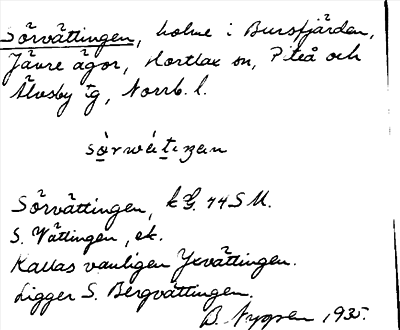 Sörvättingen, holme i Bursfjärden,
Jävre ägor, Hortlax sn, Piteå och
Älvsby tg, Norrb. l.
sörwätiŋan
Sörvättingen, 44 S M.
S. Vättingen, ek.
Kallas vanligen Yxvättingen.
Ligger S. Bergvättingen.
B. 1935.